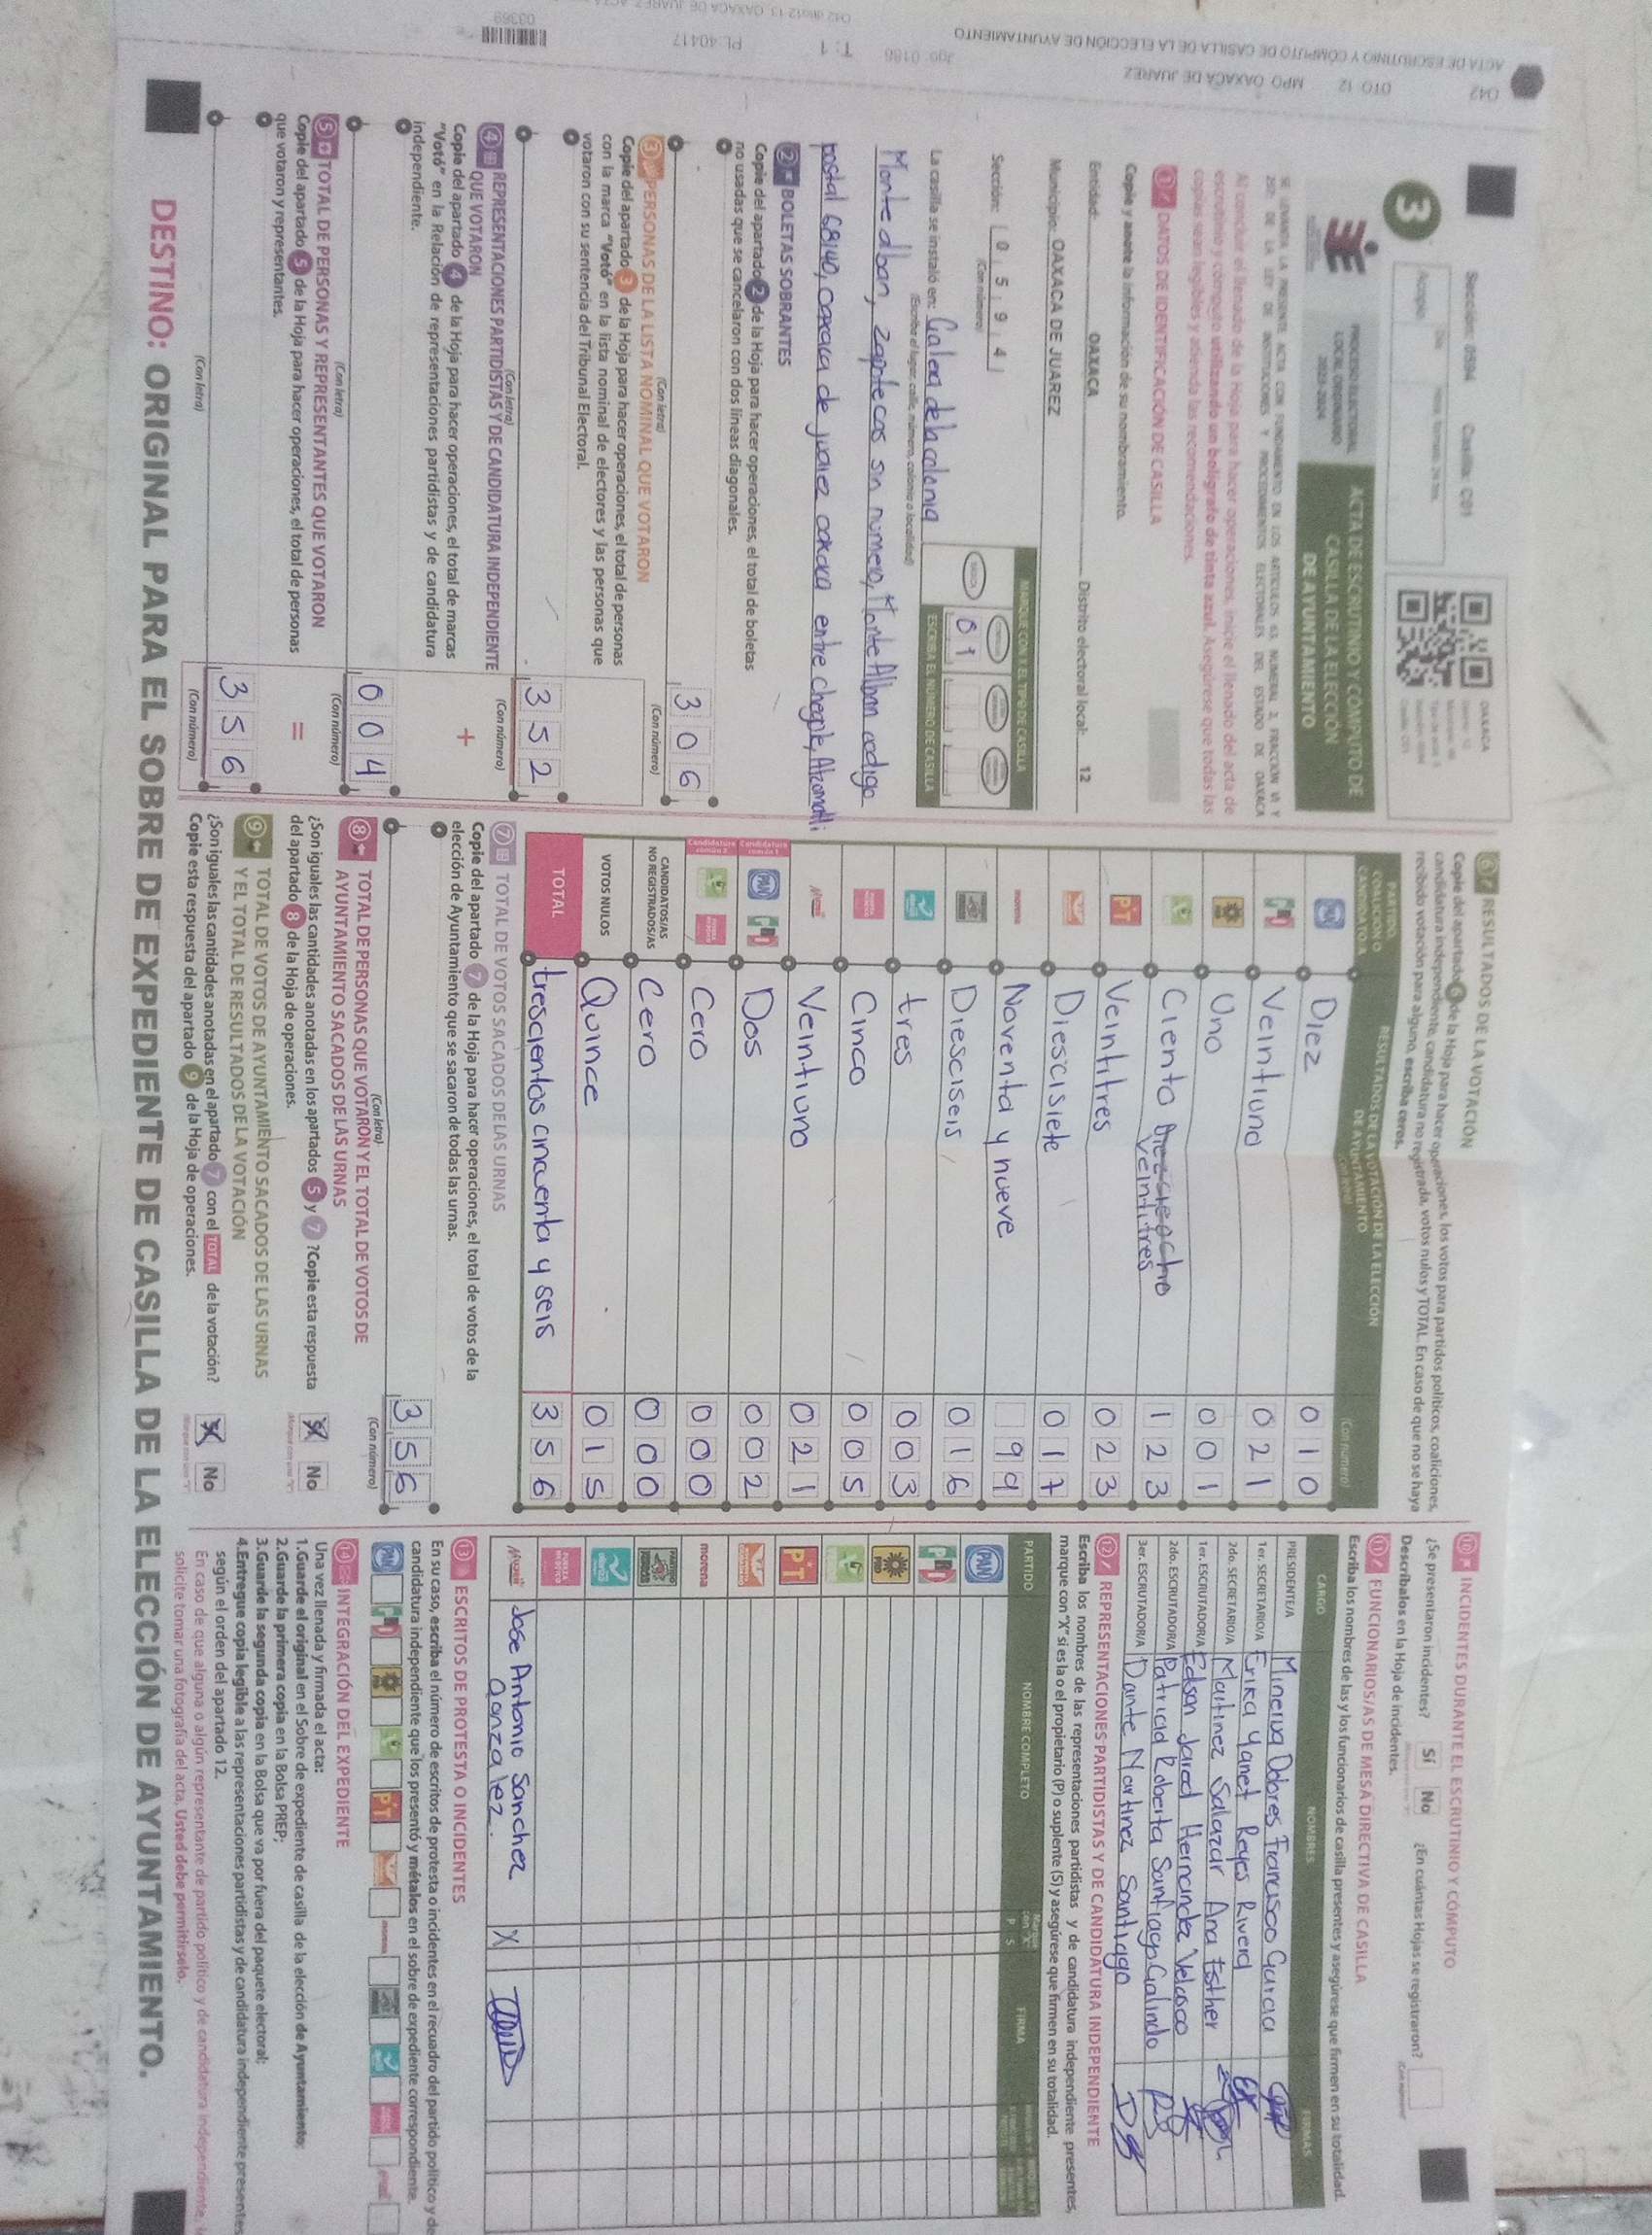 Sección: 0594 Casilla: C01
3
PROCESO ELECTORAL
LOCAL ORDINARIO
2023-2024
ACTA DE ESCRUTINIO Y CÓMPUTO DE
CASILLA DE LA ELECCIÓN
DE AYUNTAMIENTO
OAXACA
Al concluir el llenado de la Hoja para hacer operaciones, inicie el llenado del acta de
escrutinio y cómputo utilizando un bolígrafo de tinta azul. Asegúrese que todas las
copias sean legibles y atienda las recomendaciones.
1 DATOS DE IDENTIFICACIÓN DE CASILLA
Copie y anote la información de su nombramiento.
Entidad: OAXACA Distrito electoral local: 12
Municipio: OAXACA DE JUAREZ
Sección: 0 5 9 4
(Con número)
MARQUE CON X EL TIPO DE CASILLA
ESCRIBA EL NÚMERO DE CASILLA
0 1
La casilla se instaló en: Galera de la colonia
(Escriba el lugar: calle, número, colonia o localidad)
Monte alban, zapotecas sin numero, Monte Alban codigo
postal 68140, oaxaca de juarez oaxaca entre
2 BOLETAS SOBRANTES
Copie del apartado 2 de la Hoja para hacer operaciones, el total de boletas
no usadas que se cancelaron con dos líneas diagonales.
306
(Con letra) (Con número)
3 PERSONAS DE LA LISTA NOMINAL QUE VOTARON
Copie del apartado 3 de la Hoja para hacer operaciones, el total de personas
con la marca "Votó" en la lista nominal de electores y las personas que
votaron con su sentencia del Tribunal Electoral.
352
(Con letra) (Con número)
4 REPRESENTACIONES PARTIDISTAS Y DE CANDIDATURA INDEPENDIENTE
QUE VOTARON
Copie del apartado 4 de la Hoja para hacer operaciones, el total de marcas
"Votó" en la Relación de representaciones partidistas y de candidatura
independiente.
+
004
(Con letra) (Con número)
5 TOTAL DE PERSONAS Y REPRESENTANTES QUE VOTARON
Copie del apartado 5 de la Hoja para hacer operaciones, el total de personas
que votaron y representantes.
=
356
(Con letra) (Con número)
6 RESULTADOS DE LA VOTACIÓN
Copie del apartado 6 de la Hoja para hacer operaciones, los votos para partidos políticos, coaliciones,
candidatura independiente, candidatura no registrada, votos nulos y TOTAL. En caso de que no se haya
recibido votación para alguno, escriba ceros.
PARTIDO, COALICIÓN O CANDIDATO/A
RESULTADOS DE LA VOTACIÓN DE LA ELECCIÓN
DE AYUNTAMIENTO
(Con letra) (Con número)
PAN Diez 010
PRI Veintiuno 021
PRD Uno 001
Ciento Veintitres 123
PT Veintitres 023
Diescisiete 017
morena Noventa y nueve 99
Diesciseis 016
tres 003
Cinco 005
Veintiuno 021
PAN PRI Dos 002
Cero 000
CANDIDATOS/AS
NO REGISTRADOS/AS Cero 000
VOTOS NULOS Quince 015
TOTAL trescientos cincuenta y seis 356
7 TOTAL DE VOTOS SACADOS DE LAS URNAS
Copie del apartado 7 de la Hoja para hacer operaciones, el total de votos de la
elección de Ayuntamiento que se sacaron de todas las urnas.
356
(Con letra) (Con número)
8 TOTAL DE PERSONAS QUE VOTARON Y EL TOTAL DE VOTOS DE
AYUNTAMIENTO SACADOS DE LAS URNAS
¿Son iguales las cantidades anotadas en los apartados 5 y 7 ? Copie esta respuesta
del apartado 8 de la Hoja de operaciones.
Sí No
9 TOTAL DE VOTOS DE AYUNTAMIENTO SACADOS DE LAS URNAS
Y EL TOTAL DE RESULTADOS DE LA VOTACIÓN
¿Son iguales las cantidades anotadas en el apartado 7 con el TOTAL de la votación?
Copie esta respuesta del apartado 9 de la Hoja de operaciones.
Sí No
10 INCIDENTES DURANTE EL ESCRUTINIO Y CÓMPUTO
¿Se presentaron incidentes? Sí No ¿En cuántas Hojas se registraron?
Descríbalos en la Hoja de incidentes.
11 FUNCIONARIOS/AS DE MESA DIRECTIVA DE CASILLA
Escriba los nombres de las y los funcionarios de casilla presentes y asegúrese que firmen en su totalidad.
CARGO NOMBRES FIRMAS
PRESIDENTE/A Minerva Dolores Francisco Garcia
1er. SECRETARIO/A Erika Yanet Reyes Rivera
2do. SECRETARIO/A Martinez Salazar Ana Esther
1er. ESCRUTADOR/A Edson Jared Hernandez Velasco
2do. ESCRUTADOR/A Patricia Roberta Santiago Galindo
3er. ESCRUTADOR/A Dante Martinez Santiago
12 REPRESENTACIONES PARTIDISTAS Y DE CANDIDATURA INDEPENDIENTE
Escriba los nombres de las representaciones partidistas y de candidatura independiente presentes,
marque con "X" si es la o el propietario (P) o suplente (S) y asegúrese que firmen en su totalidad.
PARTIDO NOMBRE COMPLETO P S FIRMA
PAN
PRI
PRD
PT
morena
Jose Antonio Sanchez
Gonzalez. X
13 ESCRITOS DE PROTESTA O INCIDENTES
En su caso, escriba el número de escritos de protesta o incidentes en el recuadro del partido político y de
candidatura independiente que los presentó y métalos en el sobre de expediente correspondiente.
14 INTEGRACIÓN DEL EXPEDIENTE
Una vez llenada y firmada el acta:
1.Guarde el original en el Sobre de expediente de casilla de la elección de Ayuntamiento;
2.Guarde la primera copia en la Bolsa PREP;
3.Guarde la segunda copia en la Bolsa que va por fuera del paquete electoral;
4.Entregue copia legible a las representaciones partidistas y de candidatura independiente presentes
según el orden del apartado 12.
En caso de que alguna o algún representante de partido político y de candidatura independiente
solicite tomar una fotografía del acta, Usted debe permitírselo.
DESTINO: ORIGINAL PARA EL SOBRE DE EXPEDIENTE DE CASILLA DE LA ELECCIÓN DE AYUNTAMIENTO.
ACTA DE ESCRUTINIO Y CÓMPUTO DE CASILLA DE LA ELECCIÓN DE AYUNTAMIENTO
042 DTO 12 MPO OAXACA DE JUAREZ
T: 1 PL 40417
03369